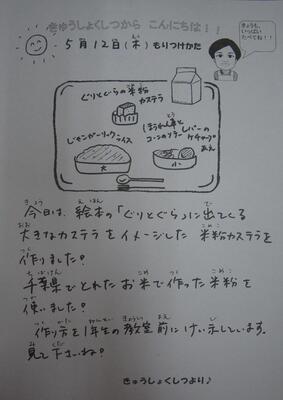 きゅうしょくしつから こんにちは！！
きょうも、
いっぱい
たべてね！！
5月12日(木) もりつけかた
ぐりとぐらの米粉
カステラ
じゃこガーリックライス
大
ほうれん草と
コーンのソテー
レバーの
ケチャップ
あえ
小
今日は、絵本の「ぐりとぐら」に出てくる
大きなカステラをイメージした 米粉カステラを
作りました？
千葉県でとれたお米で作った米粉を
使いました？
作り方を1年生の教室前にけい示しています。
見て下さいね？
きゅうしょくしつより♪